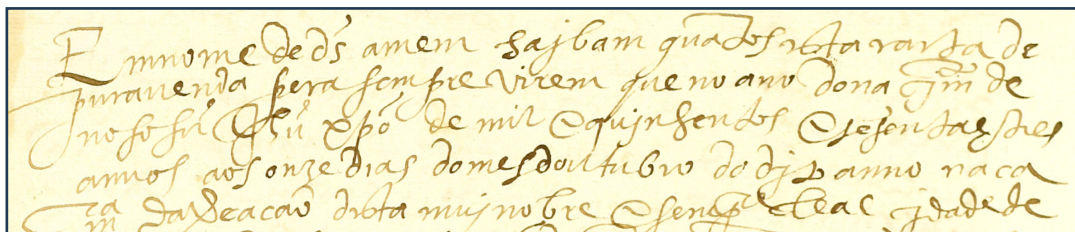 Em nome de ds amem saibam quãtos esta carta de
pura uenda pera sempre virem que no ano do nacjmto de
noso sõr Jhũ xpõ de mil e quinhentos e sesenta e tres
annos aos onze dias do mes doutubro do djto anno na ca
sa da Reacaõ desta muj nobre e senpre leal cjdade de